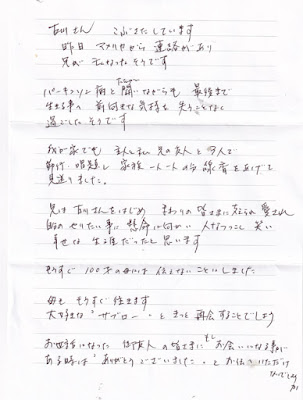 吉川さん ごぶさたしています
昨日 マナリヤから 連絡があり
兄が 亡くなったそうです
パーキンソン病と闘いながらも 最後まで
生きる事に 前向きな気持を 失うことなく
過ごしたそうです
我が家でも 主人と私 兄の友人と 3人で
献杯・黙祷し 家族一人一人 線香を上げて
見送りました。
兄は 吉川さんをはじめ まわりの皆さまに 愛され
自分のやりたい事に 懸命に向かい 人なつっこく 笑い
幸せな 生涯だったと 思います
もうすぐ 100才の母には 伝えないことにしました
母も もうすぐ 往きます
大好きな "サブロー" と きっと 再会することでしょう
お世話になった 御友人の皆さまに もし お会いになる事が
ある時は "ありがとうございました" と お伝えいただけ